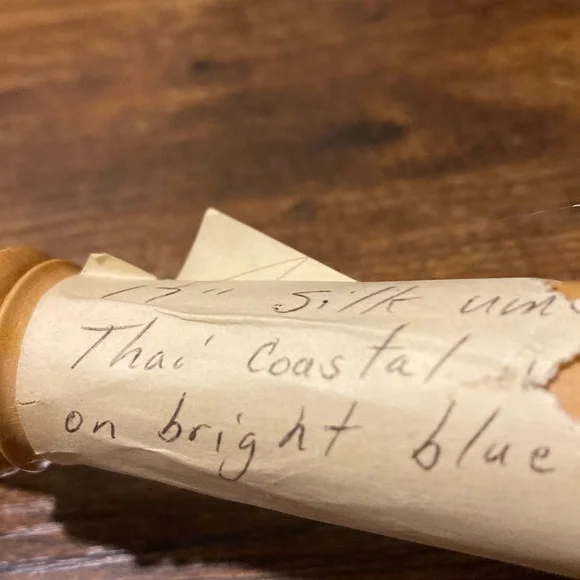 17" Silk um
Thai Coastal
on bright blue